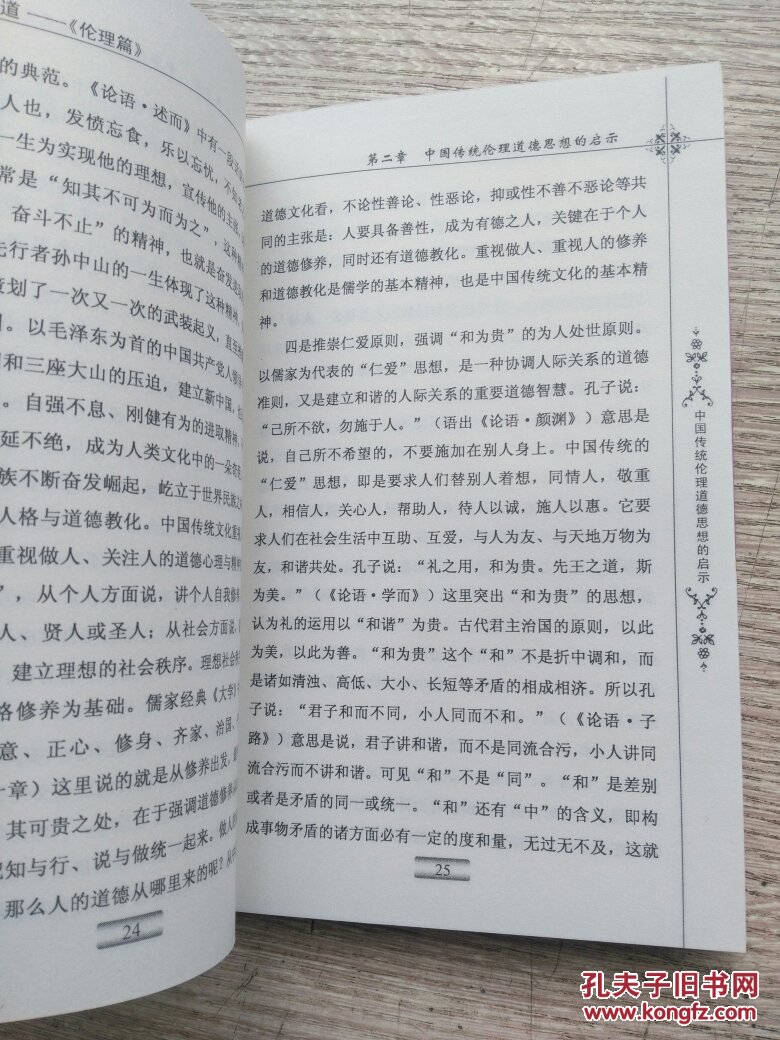 道 ——《伦理篇》
的典范。《论语·述而》中有一段
人也，发愤忘食，乐以忘忧，不知
一生为实现他的理想，宣传他的主张，
常是“知其不可为而为之”，这种
奋斗不止”的精神，也就是奋发
先行者孙中山的一生体现了这种精神，
策划了一次又一次的武装起义，直至
以毛泽东为首的中国共产党人
和三座大山的压迫，建立新中国，也
。自强不息、刚健有为的进取精神，
延不绝，成为人类文化中的一朵奇
族不断奋发崛起，屹立于世界民族之
人格与道德教化。中国传统文化重
重视做人、关注人的道德心理与精
”，从个人方面说，讲个人自我修养
人、贤人或圣人；从社会方面说，
建立理想的社会秩序。理想社会
格修养为基础。儒家经典《大学》
意、正心、修身、齐家、治国、
一章）这里说的就是从修养出发，
其可贵之处，在于强调道德修养
把知与行、说与做统一起来。做人
那么人的道德从哪里来的呢？从
24
第二章 中国传统伦理道德思想的启示
道德文化看，不论性善论、性恶论，抑或性不善不恶论等共
同的主张是：人要具备善性，成为有德之人，关键在于个人
的道德修养，同时还有道德教化。重视做人、重视人的修养
和道德教化是儒学的基本精神，也是中国传统文化的基本精
神。
四是推崇仁爱原则，强调“和为贵”的为人处世原则。
以儒家为代表的“仁爱”思想，是一种协调人际关系的道德
准则，又是建立和谐的人际关系的重要道德智慧。孔子说：
“己所不欲，勿施于人。”（语出《论语·颜渊》）意思是
说，自己所不希望的，不要施加在别人身上。中国传统的
“仁爱”思想，即是要求人们替别人着想，同情人，敬重
人，相信人，关心人，帮助人，待人以诚，施人以惠。它要
求人们在社会生活中互助、互爱，与人为友、与天地万物为
友，和谐共处。孔子说：“礼之用，和为贵。先王之道，斯
为美。”（《论语·学而》）这里突出“和为贵”的思想，
认为礼的运用以“和谐”为贵。古代君主治国的原则，以此
为美，以此为善。“和为贵”这个“和”不是折中调和，而
是诸如清浊、高低、大小、长短等矛盾的相成相济。所以孔
子说：“君子和而不同，小人同而不和。”（《论语·子
路》）意思是说，君子讲和谐，而不是同流合污，小人讲同
流合污而不讲和谐。可见“和”不是“同”。“和”是差别
或者是矛盾的同一或统一。“和”还有“中”的含义，即构
成事物矛盾的诸方面必有一定的度和量，无过无不及，这就
25
中国传统伦理道德思想的启示
孔夫子旧书网
www.kongfz.com